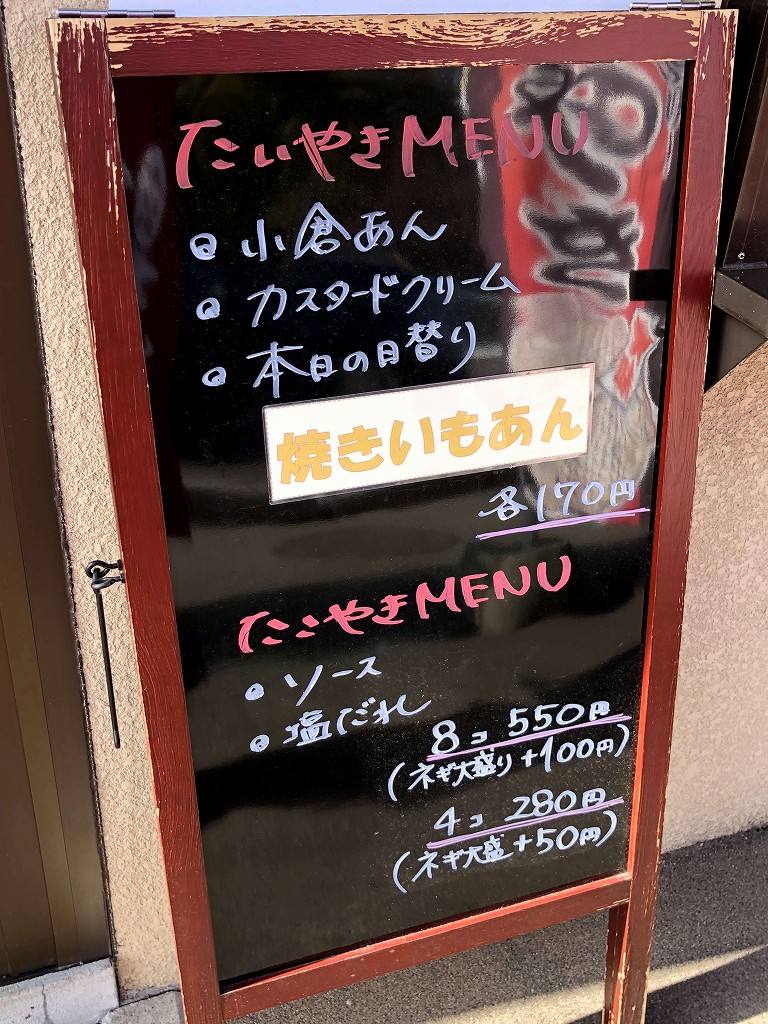 たいやきMENU
小倉あん
カスタードクリーム
本日の日替り
焼きいもあん
各170円
たこやきMENU
ソース
塩だれ
8コ 550円
(ネギ大盛り+100円)
4コ 280円
(ネギ大盛+50円)